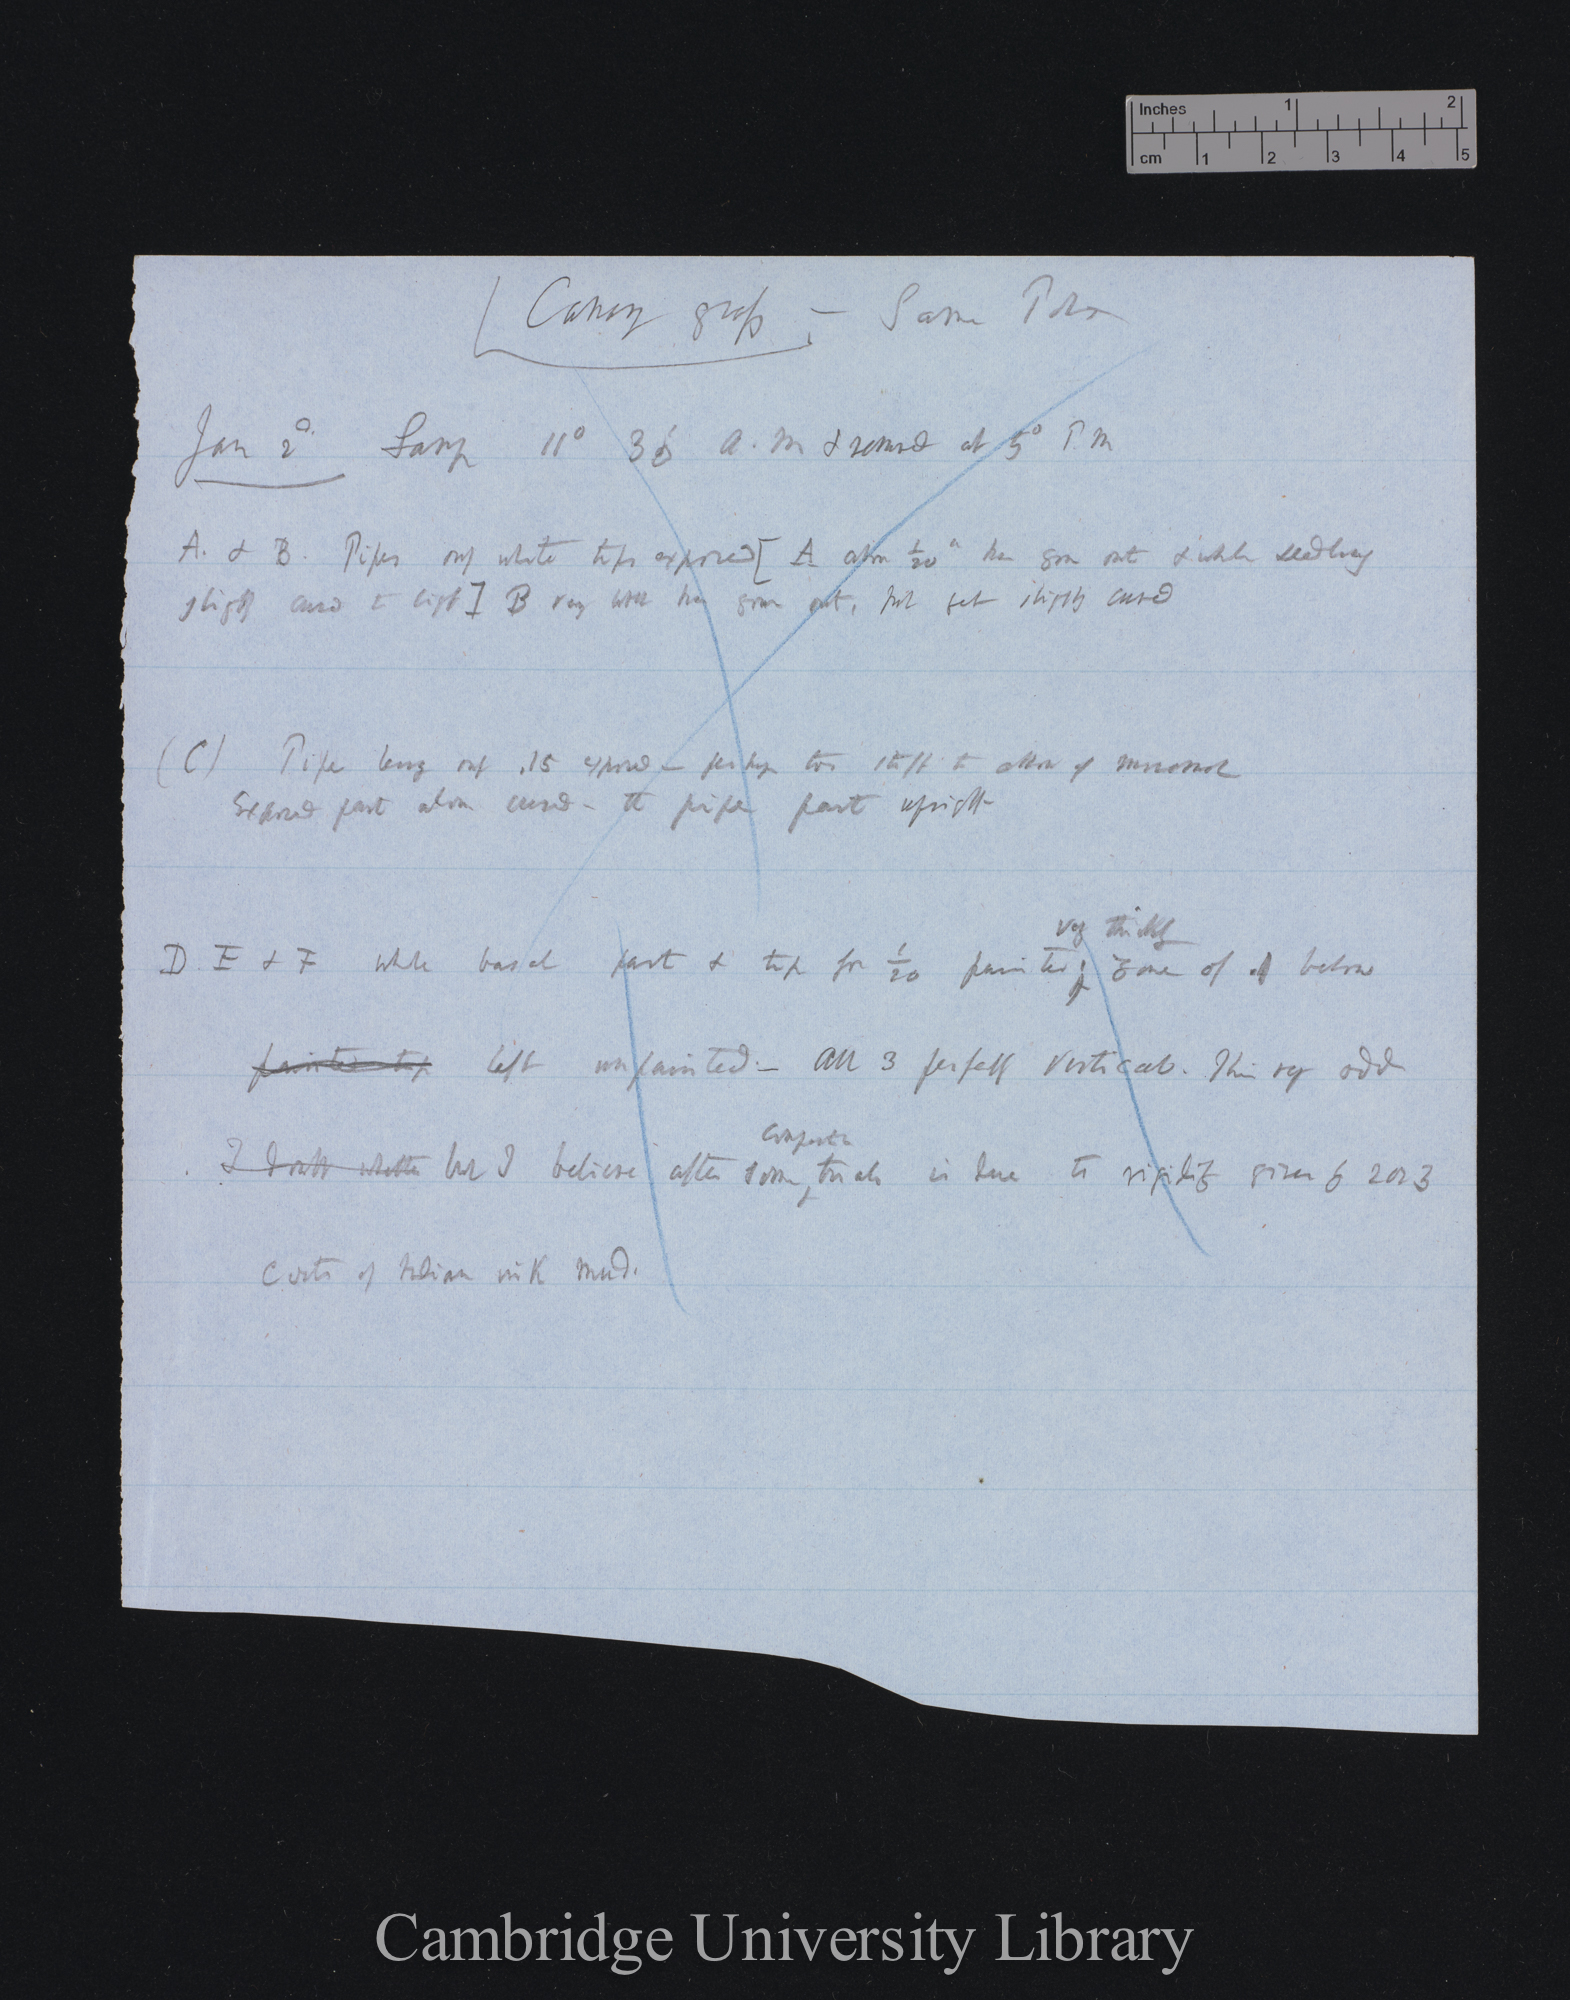 Inches 1 2
cm 1 2 3 4 5
Canary grass – Same Pots
Jan 2d. Lamp 11° 36' a.m & removed at 5° P.M
A. & B. Pipes only white tips exposed [ A about 1/20" has grown out & whole seedling
slightly curved to light ] B very little has grown out, but yet slightly curved
(C) Pipe long only .15 exposed – perhaps too stiff to allow of movement
Exposed part alone curved – the pipe part upright
very thickly
D. E & F whole basal part & tip for 1/20 painted; zone of .1 below
painted tip left unpainted – All 3 perfectly vertical. This very odd
comparative
I doubt whether but I believe after some trials is due to rigidity given by 2 or 3
Coats of Indian ink mud.
Cambridge University Library